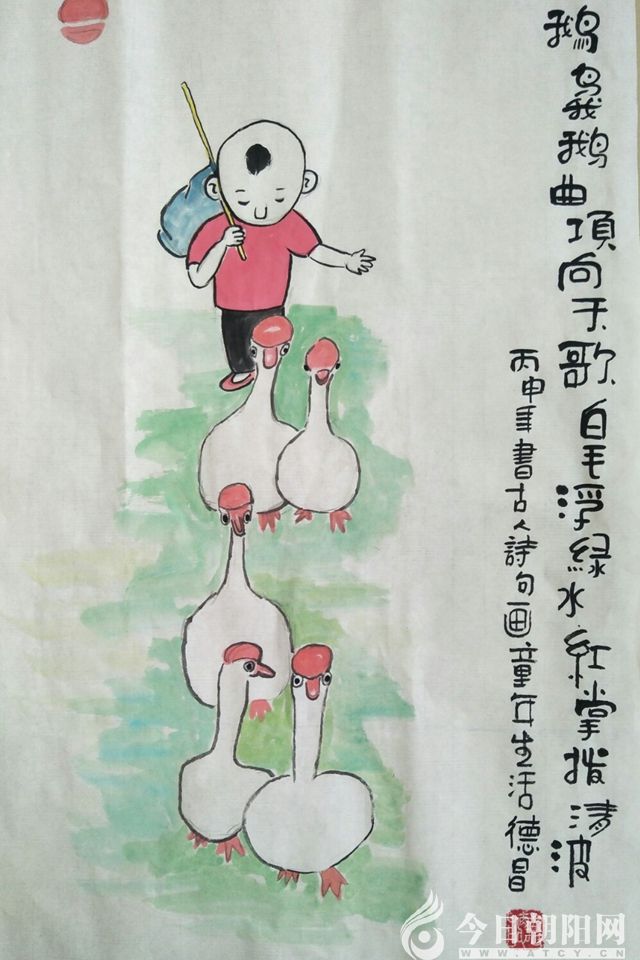 鹅鵞鹅曲項向天歌白毛浮緑水红掌拨清波
丙申年書古人詩句画童年生活德昌
今日朝阳网
WWW.ATCY.CN